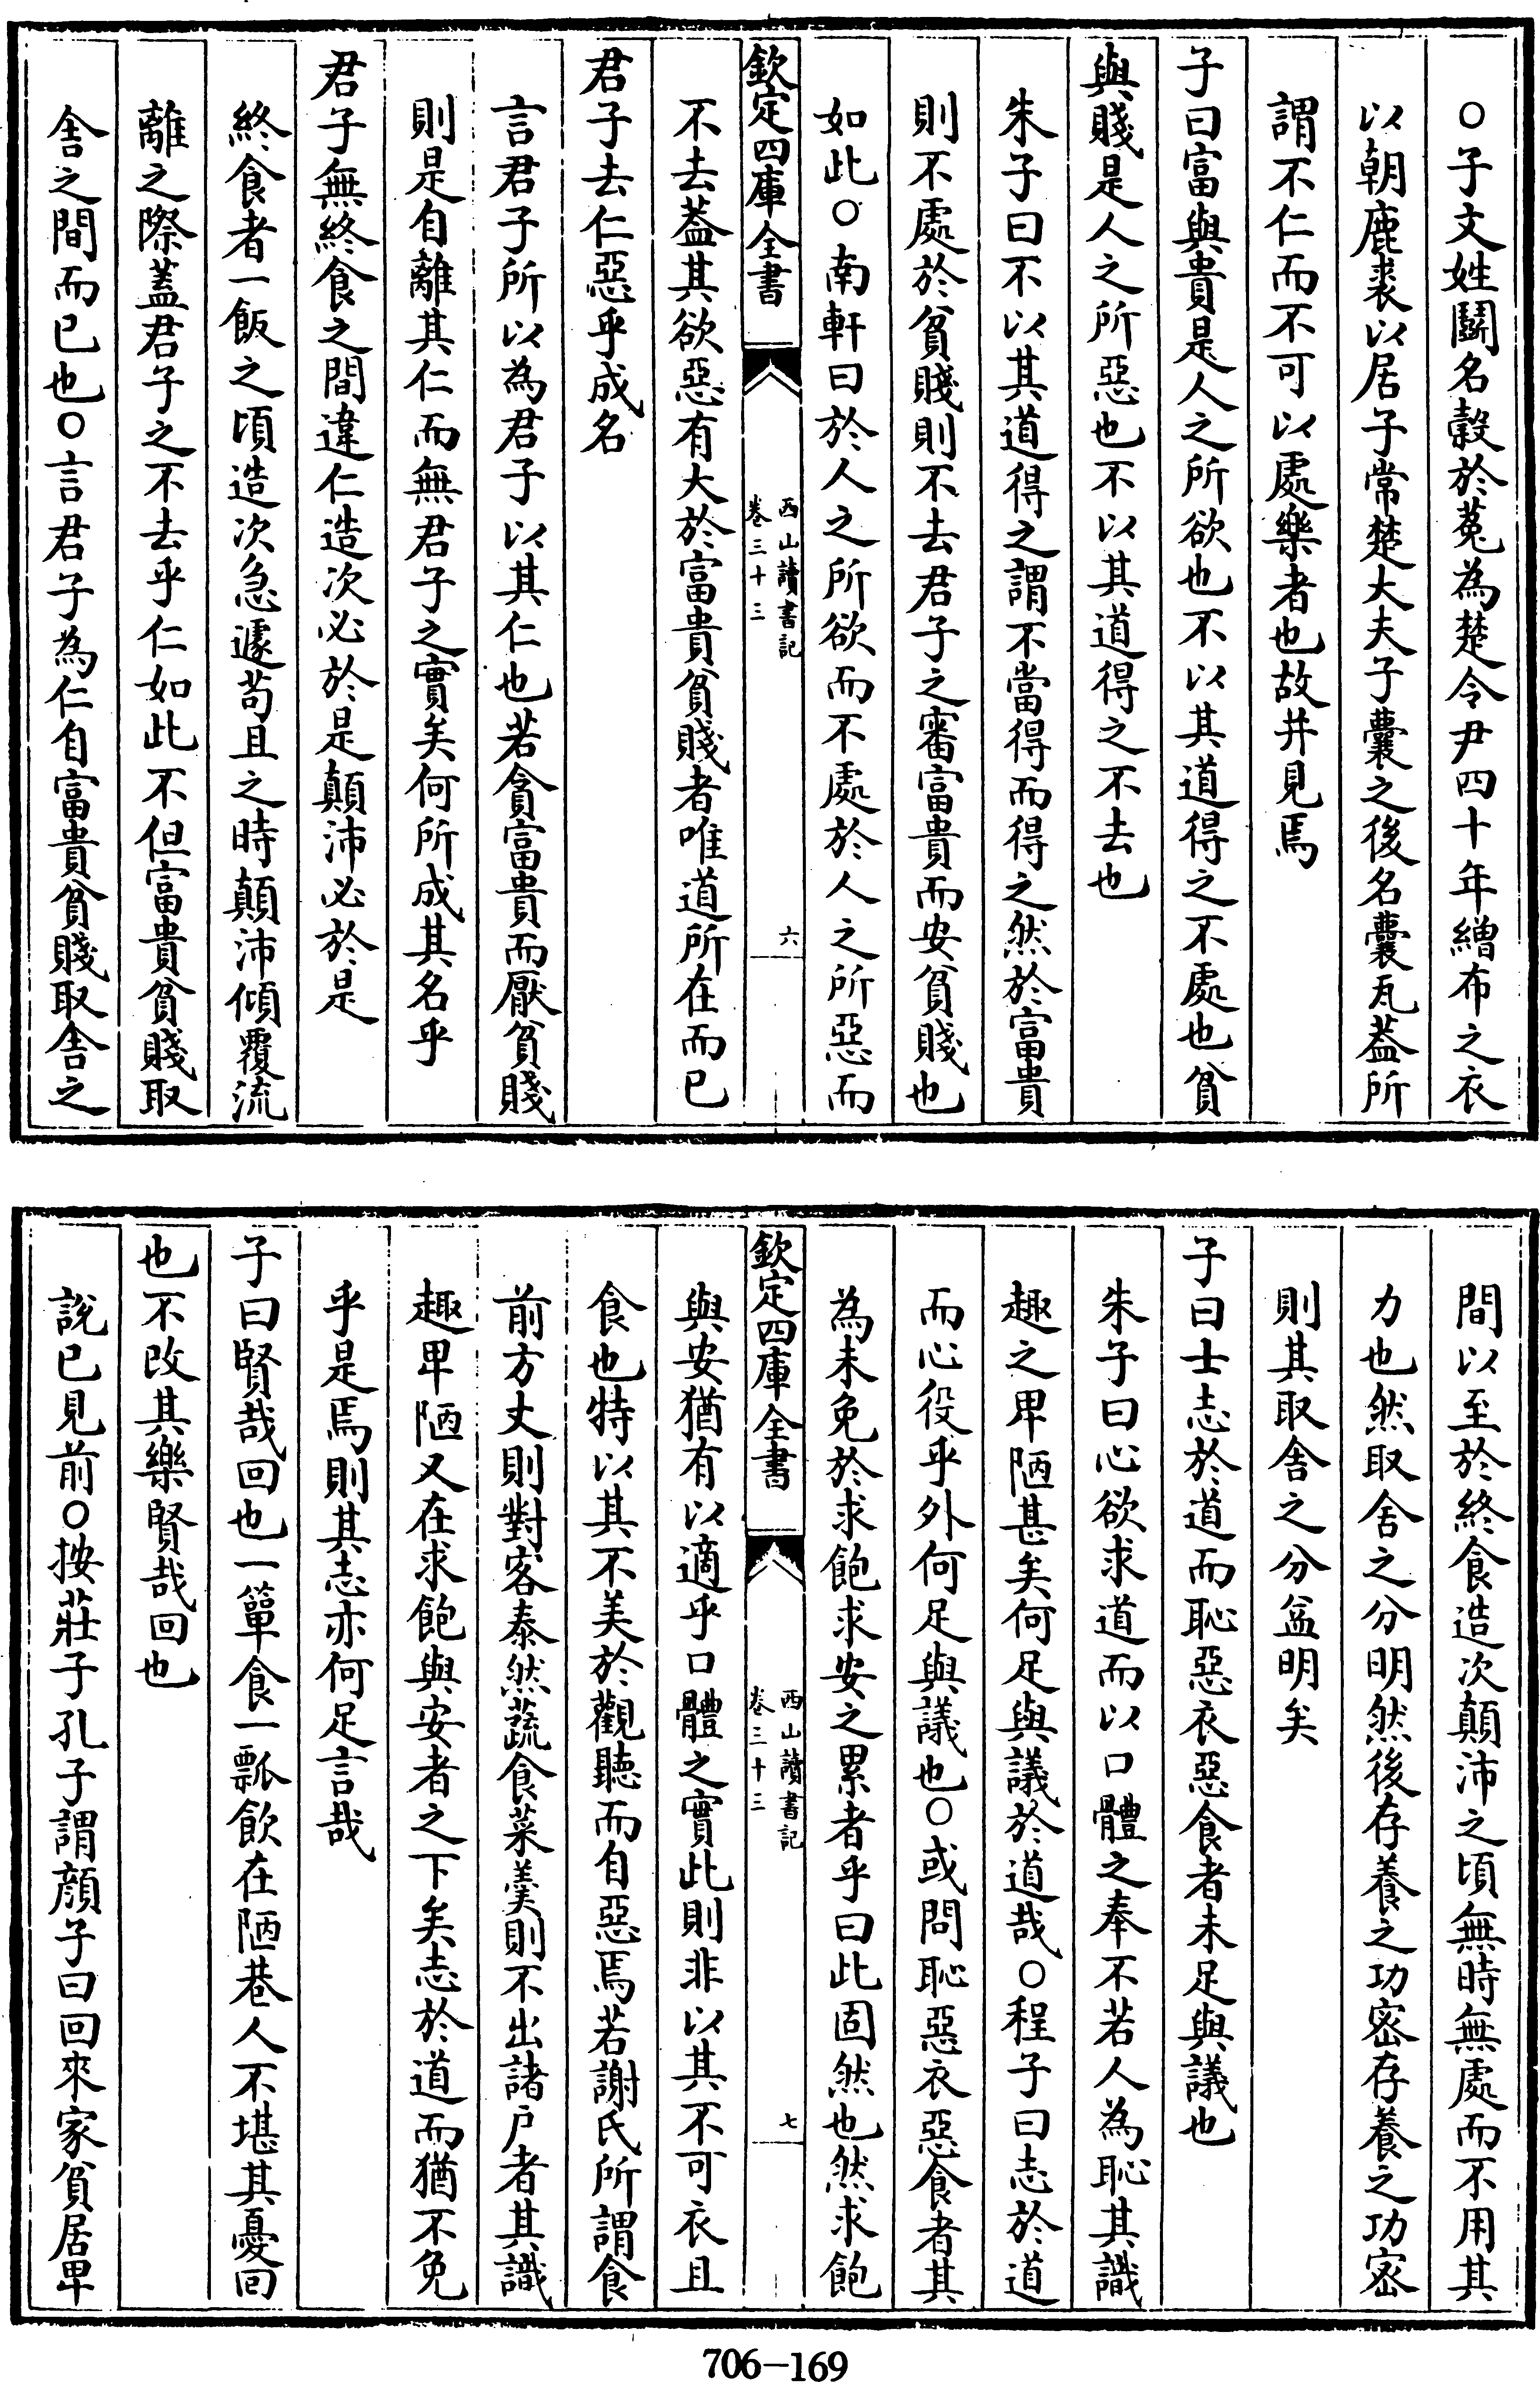 ○子文姓鬭名穀於菟為楚令尹四十年繒布之衣
以朝鹿裘以居子常楚大夫子囊之後名囊瓦蓋所
謂不仁而不可以處樂者也故并見焉
子曰富與貴是人之所欲也不以其道得之不處也貧
與賤是人之所惡也不以其道得之不去也
朱子曰不以其道得之謂不當得而得之然於富貴
則不處於貧賤則不去君子之審富貴而安貧賤也
如此○南軒曰於人之所欲而不處於人之所惡而
欽定四庫全書
西山讀書記
卷三十三
六
不去葢其欲惡有大於富貴貧賤者唯道所在而已
君子去仁惡乎成名
言君子所以為君子以其仁也若貪富貴而厭貧賤
則是自離其仁而無君子之實矣何所成其名乎
君子無終食之間違仁造次必於是顛沛必於是
終食者一飯之頃造次急遽苟且之時顛沛傾覆流
離之際蓋君子之不去乎仁如此不但富貴貧賤取
舍之間而已也○言君子為仁自富貴貧賤取舍之
間以至於終食造次顛沛之頃無時無處而不用其
力也然取舍之分明然後存養之功密存養之功密
則其取舍之分益明矣
子曰士志於道而恥惡衣惡食者未足與議也
朱子曰心欲求道而以口體之奉不若人為恥其識
趣之卑陋甚矣何足與議於道哉○程子曰志於道
而心役乎外何足與議也○或問恥惡衣惡食者其
為未免於求飽求安之累者乎曰此固然也然求飽
欽定四庫全書
西山讀書記
卷三十三
七
與安猶有以適乎口體之實此則非以其不可衣且
食也特以其不美於觀聽而自惡焉若謝氏所謂食
前方丈則對客泰然蔬食菜羹則不出諸户者其識
趣卑陋又在求飽與安者之下矣志於道而猶不免
乎是焉則其志亦何足言哉
子曰賢哉回也一簞食一瓢飲在陋巷人不堪其憂回
也不改其樂賢哉回也
說已見前○按莊子孔子謂顔子曰回來家貧居卑
706-169